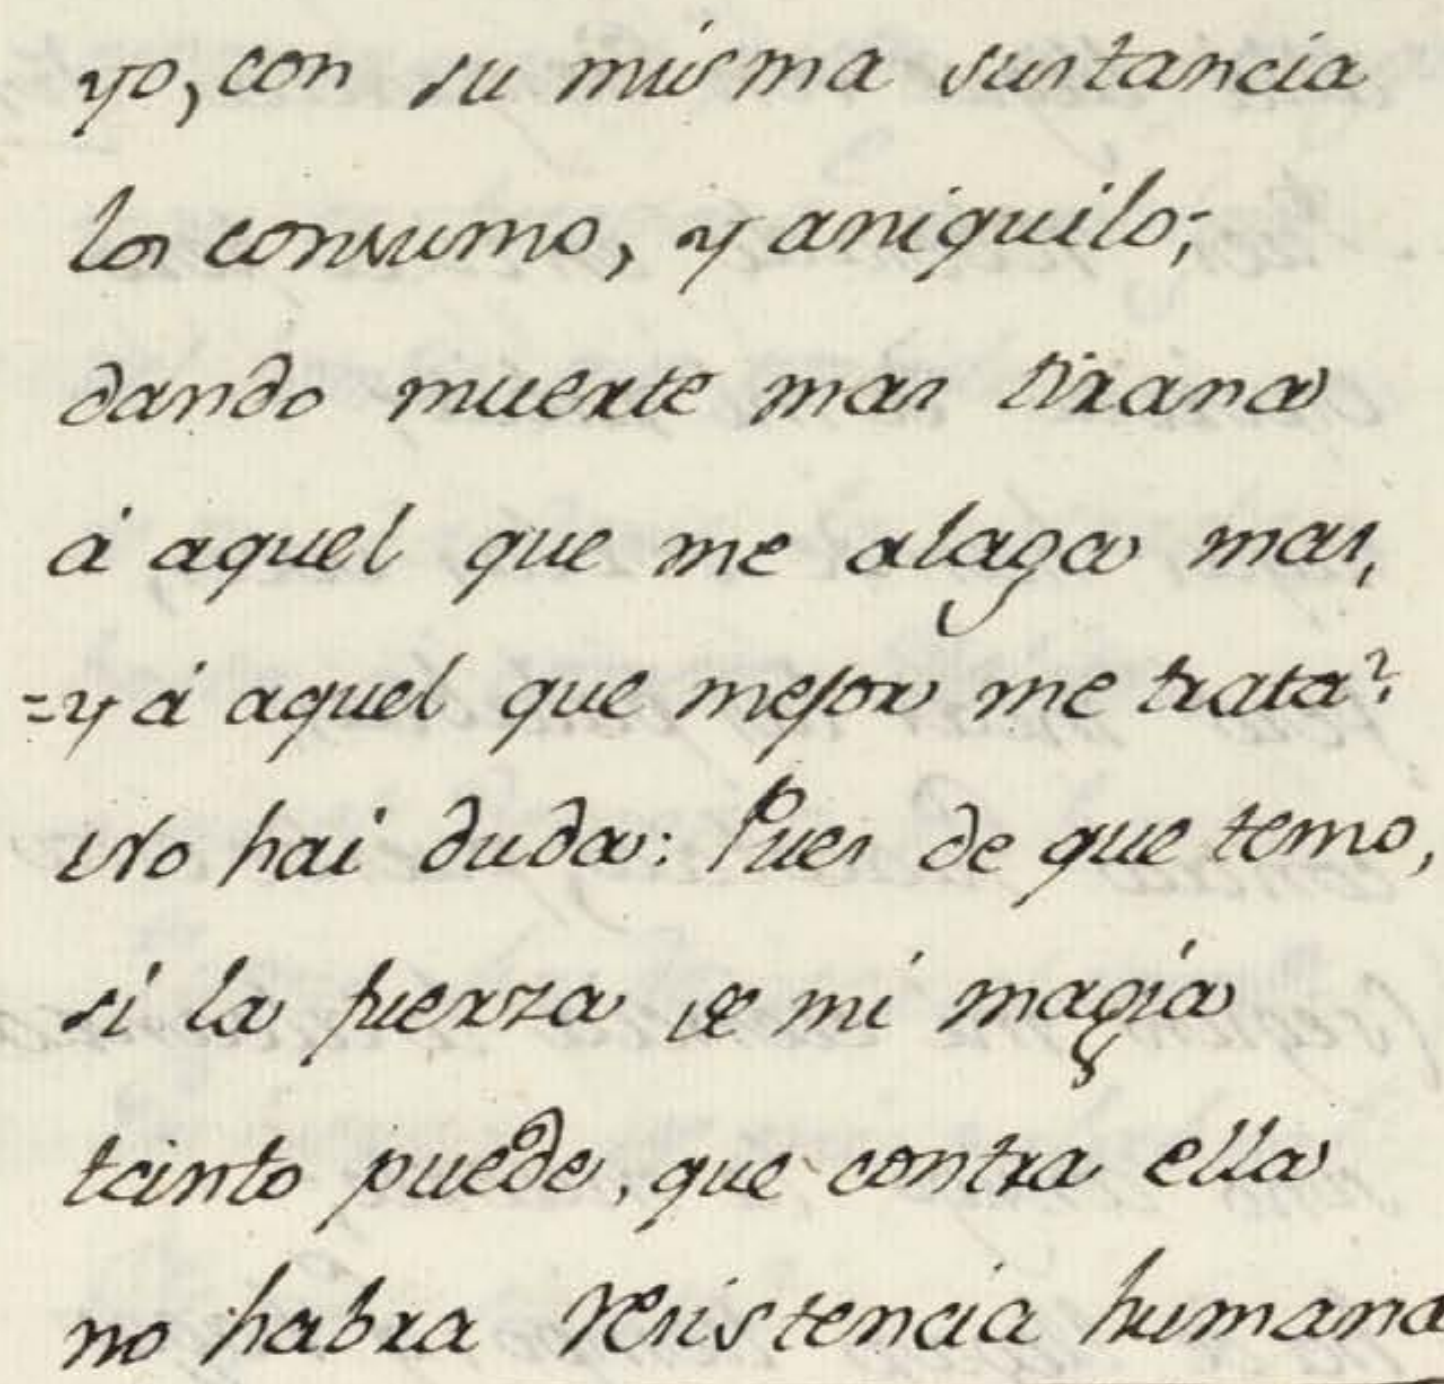 yo, con su misma sustancia
los consumo, y aniquilo;
dando muerte mas tirana
á aquel que me alaga mas,
=y á aquel que mejor me trata?
No hai duda: Pues de que temo,
si la fuerza de mi magia
tanto puede, que contra ella
no habra resistencia humana